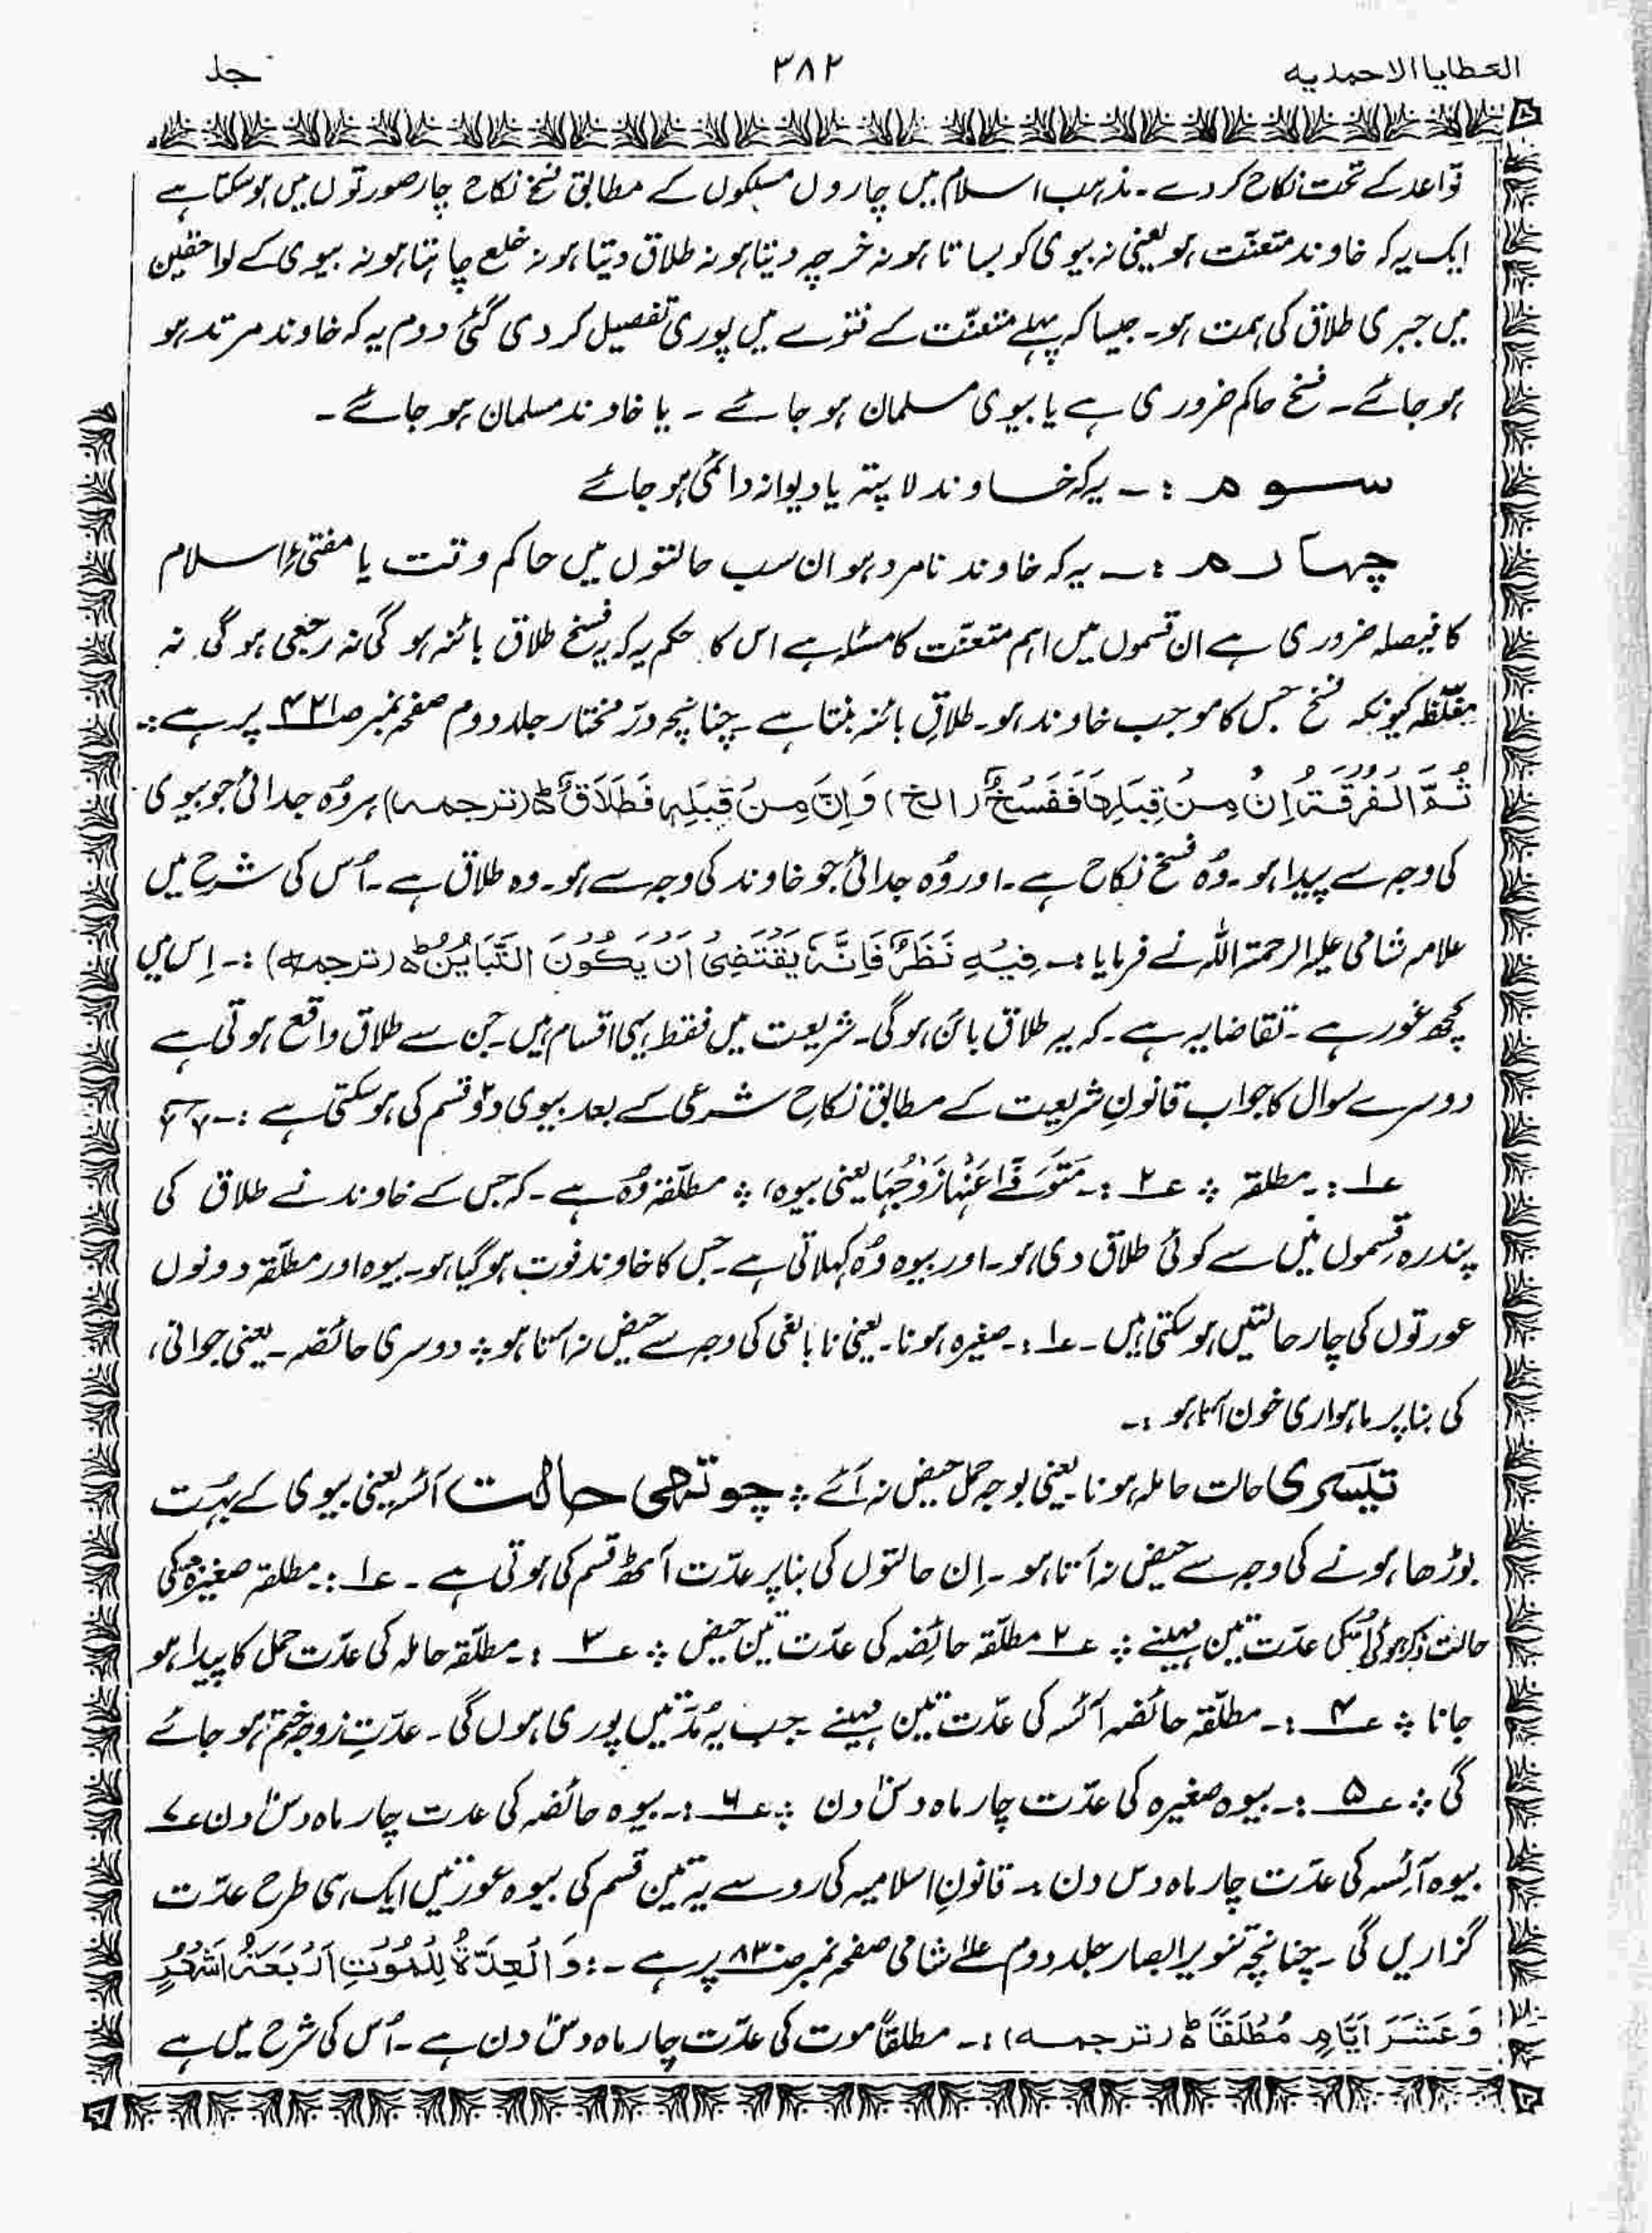 العطایا الاحمدیہ ۳۸۲ جلد
قواعد کے تحت نکاح کر دے ۔ مذہب اسلام میں چاروں مسلکوں کے مطابق فسخ نکاح چار صورتوں میں ہو سکتا ہے
ایک یہ کہ خاوند متعنّت ہو یعنی نہ بیوی کو بساتا ہو نہ خرچہ دیتا ہو نہ طلاق دیتا ہو نہ خلع چاہتا ہو نہ بیوی کے لواحقین
میں جبری طلاق کی ہمت ہو ۔ جیسا کہ پہلے متعنّت کے فتوے میں پوری تفصیل کر دی گئی دوم یہ کہ خاوند مرتد ہو
ہو جائے ۔ فسخ حاکم ضروری ہے یا بیوی مسلمان ہو جائے ۔ یا خاوند مسلمان ہو جائے ۔
سوم :۔ یہ کہ خاوند لا پتہ یا دیوانہ دائمی ہو جائے
چہارم :۔ یہ کہ خاوند نامرد ہو ان سب حالتوں میں حاکم وقت یا مفتیٔ اسلام
کا فیصلہ ضروری ہے ان قسموں میں اہم متعنّت کا مسئلہ ہے اس کا حکم یہ کہ یہ فسخ طلاق بائنہ ہو گی نہ رجعی ہو گی نہ
مغلّظہ کیونکہ فسخ جس کا موجب خاوند ہو ۔ طلاقِ بائنہ بنتا ہے ۔ چنانچہ درّ مختار جلد دوم صفحہ نمبر صـ۴۲۱ پر ہے :۔
ثُمَّ الْفُرْقَةُ اِنْ مِنْ قِبَلِهَا فَفَسْخٌ (الخ) وَاِنْ مِنْ قِبَلِہٖ فَطَلَاقٌ ط (ترجمہ) ہر وُہ جدائی جو بیوی
کی وجہ سے پیدا ہو ۔ وُہ فسخ نکاح ہے ۔ اور وُہ جدائی جو خاوند کی وجہ سے ہو ۔ وہ طلاق ہے ۔ اُس کی شرح میں
علامہ شامی علیہ الرحمۃ اللہ نے فرمایا :۔ فِيْهِ نَظَرٌ فَاِنَّهٗ يَقْتَضِيْ اَنْ يَكُوْنَ التَّبَايُنُ ط (ترجمہ) :۔ اِس میں
کچھ غور ہے ۔ تقاضا یہ ہے ۔ کہ یہ طلاق بائن ہو گی ۔ شریعت میں فقط یہی اقسام ہیں ۔ جن سے طلاق واقع ہوتی ہے
دوسرے سوال کا جواب قانونِ شریعت کے مطابق نکاحِ شرعی کے بعد بیوی دو قسم کی ہو سکتی ہے :۔
ع۱ :۔ مطلقہ ؞ ع۲ :۔ مَتَوَفّٰے عَنْہَا زَوْجُہَا یعنی بیوہ ، ؞ مطلّقہ وُہ ہے ۔ کہ جس کے خاوند نے طلاق کی
پندرہ قِسموں میں سے کوئی طلاق دی ہو ۔ اور بیوہ وُہ کہلاتی ہے ۔ جس کا خاوند فوت ہو گیا ہو ۔ بیوہ اور مطلّقہ دونوں
عورتوں کی چار حالتیں ہو سکتی ہیں ۔ ع۱ :۔ صغیرہ ہونا ۔ یعنی نا بالغی کی وجہ سے حیض نہ آتا ہو ؞ دوسری حائضہ ۔ یعنی جوانی ،
کی بنا پر ماہواری خون آتا ہو :۔
تیسری حالت حاملہ ہونا یعنی بوجہ حمل حیض نہ آئے ؞ چوتھی حالت آئسہ یعنی بیوی کے بہت
بوڑھا ہونے کی وجہ سے حیض نہ آتا ہو ۔ اِن حالتوں کی بنا پر عدّت آٹھ قسم کی ہوتی ہے ۔ ع۱ :۔ مطلقہ صغیرہ جسکی
حالت ذکر ہوئی اُسکی عدّت تین مہینے ؞ ع۲ مطلّقہ حائِضہ کی عدّت تین حیض ؞ ع۳ :۔ مطلّقہ حاملہ کی عدّت حمل کا پیدا ہو
جانا ؞ ع۴ :۔ مطلّقہ حائضہ آئسہ کی عدّت تین مہینے ۔ جب یہ مُدّتیں پوری ہوں گی ۔ عدّتِ زوجہ ختم ہو جائے
گی ؞ ع۵ :۔ بیوہ صغیرہ کی عدّت چار ماہ دس دن ؞ ع۶ :۔ بیوہ حائضہ کی عدت چار ماہ دس دن ع۷
بیوہ آئِسہ کی عدّت چار ماہ دس دن ۔ قانونِ اسلامیہ کی رو سے یہ تین قسم کی بیوہ عورتیں ایک ہی طرح عدّت
گزاریں گی ۔ چنانچہ تنویر الابصار جلد دوم علیٰ شامی صفحہ نمبر صـ۸۳ پر ہے ۔ : وَالْعِدَّةُ لِلْمَوْتِ اَرْبَعَةُ اَشْهُرٍ
وَعَشَرَ اَيَّامٍ مُطْلَقًا ط (ترجمہ) :۔ مطلقاً موت کی عدّت چار ماہ دس دن ہے ۔ اُس کی شرح میں ہے